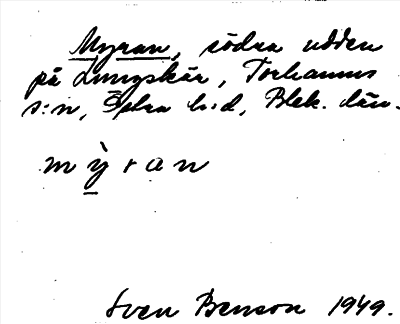 Myran, södra udden
på Lungskär, Torhamns
s:n, Östra h:d, Blek. län.
m ỳ̠ r a n
Sven Benson 1949.